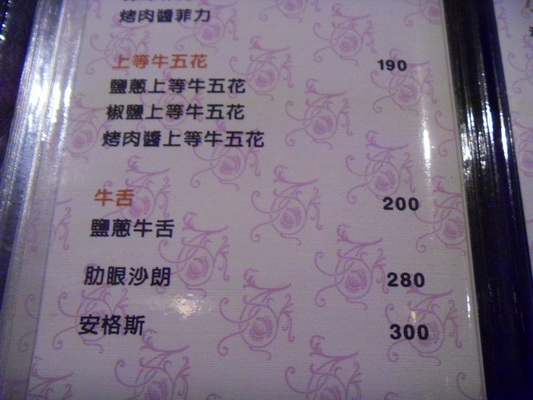 烤肉醬菲力
上等牛五花 190
鹽蔥上等牛五花
椒鹽上等牛五花
烤肉醬上等牛五花
牛舌 200
鹽蔥牛舌
肋眼沙朗 280
安格斯 300